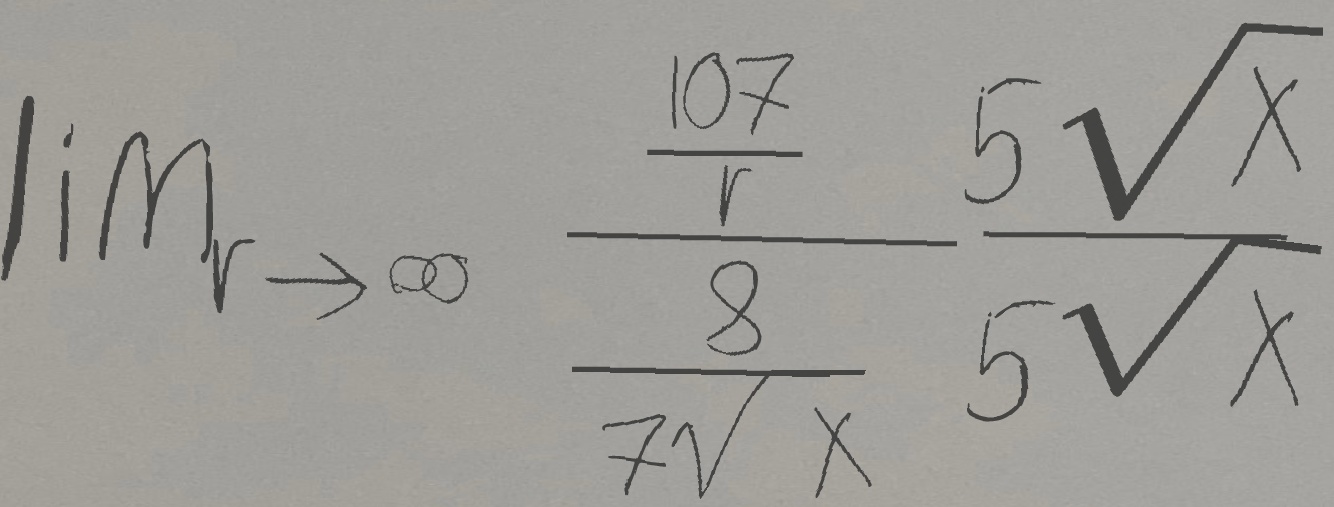 \lim_{r \to \infty} \frac{\frac{107}{r}}{\frac{8}{7\sqrt{x}}} \frac{5\sqrt{x}}{5\sqrt{x}}